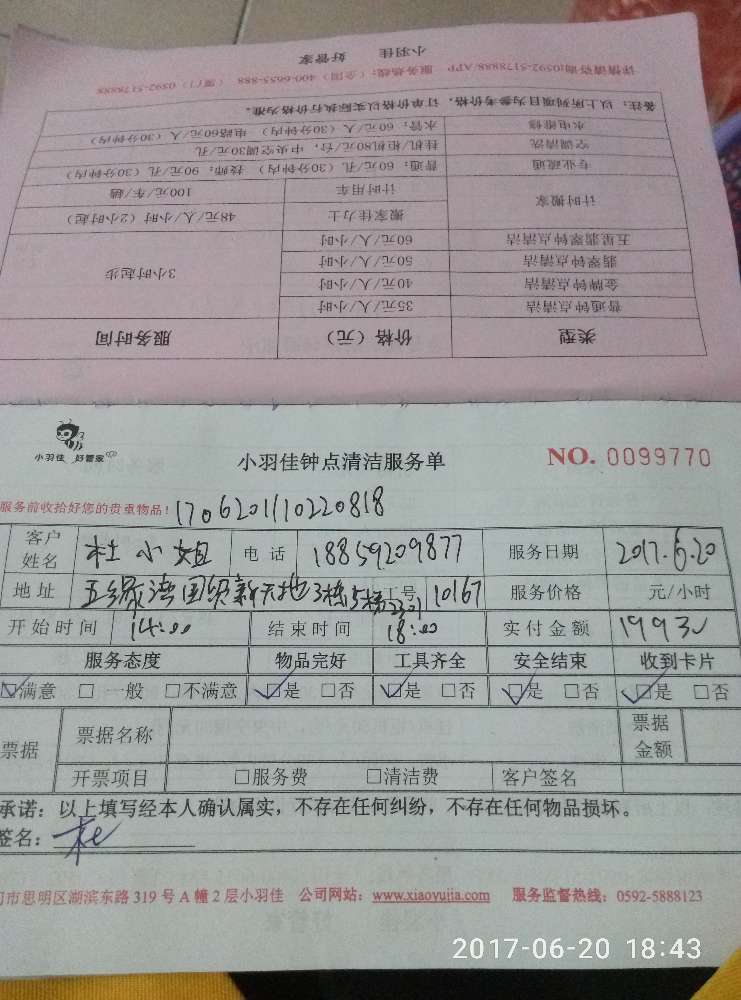 小羽佳 好管家
详情请咨询:0592-5178888 APP 服务热线:(全国) 400-6655-888 (厦门) 0592-5178888
类型 价格(元) 服务时间
普通钟点清洁 35元/人/小时 3小时起步
金牌钟点清洁 40元/人/小时
翡翠钟点清洁 50元/人/小时
五星翡翠钟点清洁 60元/人/小时
计时搬家 搬家佳力士 48元/人/小时(2小时起)
计时用车 100元/车/趟
专业疏通 普通:60元/孔(30分钟内) 技师:90元/孔(30分钟内)
空调清洗 挂机/柜机80元/台,中央空调30元/孔
水电维修 水管:60元/人(30分钟内) 电路60元/人(30分钟内)
备注:以上所列项目为参考价格,订单价格以实际执行价格为准。
小羽佳 好管家
小羽佳钟点清洁服务单
NO. 0099770
服务前收拾好您的贵重物品!
1706201110220818
客户姓名 杜小姐 电话 18859209877 服务日期 2017.6.20
地址 3栋 2301 工号 10167 服务价格 元/小时
开始时间 14:00 结束时间 18:00 实付金额
服务态度 物品完好 工具齐全 安全结束 收到卡片
☑满意 □一般 □不满意 ☑是 □否 ☑是 □否 ☑是 □否 ☑是 □否
票据 票据名称 票据金额
开票项目 □服务费 □清洁费 客户签名
承诺:以上填写经本人确认属实,不存在任何纠纷,不存在任何物品损坏。
签名:杜
门市思明区湖滨东路 319 号 A 幢 2 层小羽佳 公司网站:www.xiaoyujia.com 服务监督热线:0592-5888123
2017-06-20 18:43